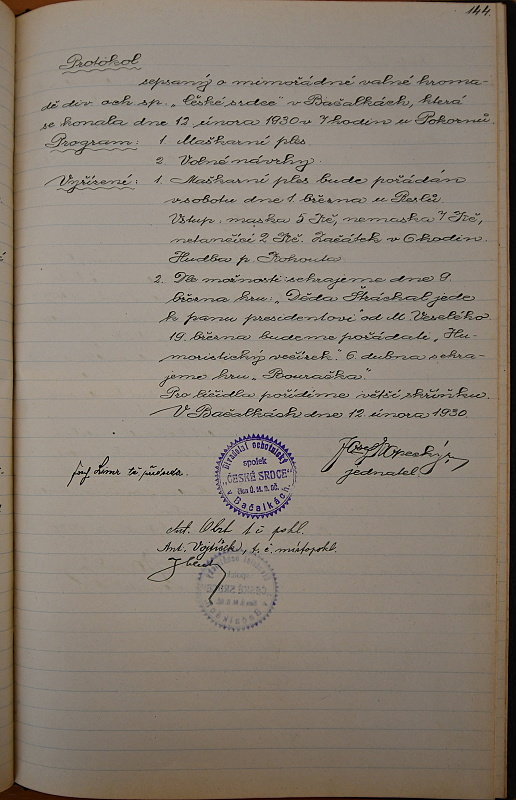 144.
Protokol
sepsaný o mimořádné valné hroma-
dě div. och. sp. „České srdce" v Bačalkách, která
se konala dne 12. února 1930 v 7 hodin u Pokorných.
Program: 1. Maškarní ples.
2. Volné návrhy.
Vyřízení: 1. Maškarní ples bude pořádán
v sobotu dne 1. března u
Vstup: maska 5 Kč, nemaska 7 Kč,
netančící 2 Kč. Začátek v 6 hodin.
Hudba p. Kohouta.
2. Dle možnosti sehrajeme dne 9.
března hru: „Děda Štráchal jede
k panu presidentovi" od M. Veselého
19. března budeme pořádati „Hu-
moristický večírek". 6. dubna sehra-
jeme hru „Bouračka".
Pro líčidla pořídíme větší skříňku.
V Bačalkách dne 12. února 1930.
Divadelní ochotnický
spolek
„ČESKÉ SRDCE"
v Bačalkách.
Josef Kopecký
jednatel
t. č.
Ant. t. č. pokl.
Ant. Vojtíšek, t. č. místopokl.